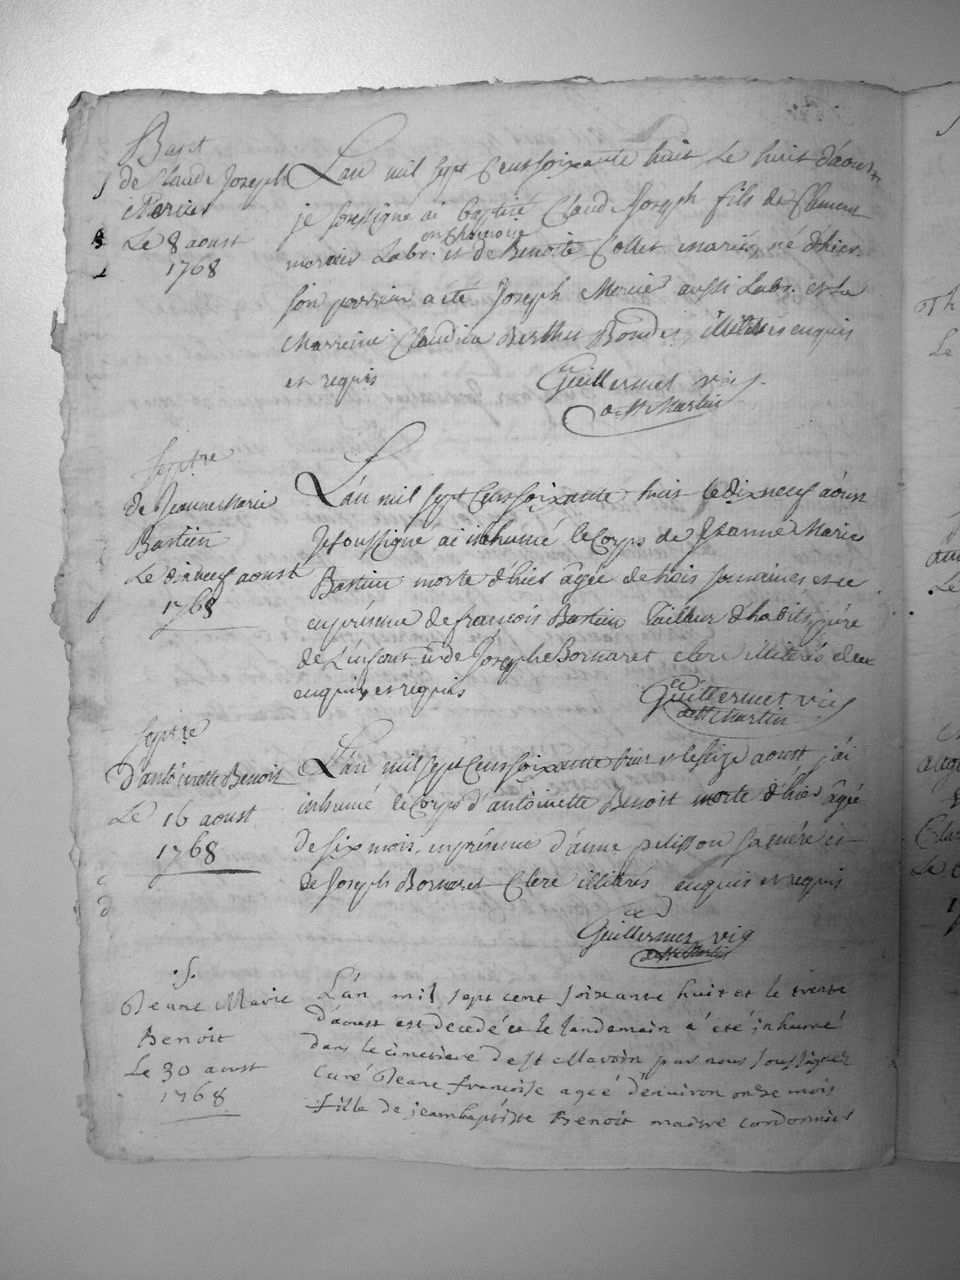 Bapt
de Claude Joseph
Mercier
Le 8 aoust
1768
L'an mil sept cens soixante huit Le huit d'aoust
je soussigné ai baptisé Claude Joseph fils de Clement
mercier Labr. et de Benoite Collet mariés, né d'hier
son parrein a été Joseph Mercie aussi Labr. et La
Marreine Claudita Berthet illiterés enquis
et requis
Guillermet vic
de St Martin
septre
de Jeanne Marie
Bastien
Le dix neuf aoust
1768
L'an mil sept cens soixante huit le dix neuf aoust
Je soussigné ai inhumé le Corps de Jeanne Marie
Bastien morte d'hier âgée de trois semaines et ce
en présence de françois Bastien Tailleur d'habits, père
de L'enfant et de Joseph Bornaret clerc illiterés
enquis et requis
Guillermet vic
de St Martin
septre
d'antoinette Benoit
Le 16 aoust
1768
L'an mil sept cens soixante huit et le seize aoust j'ai
inhumé le Corps d'antoinette Benoit morte d'hier âgée
de six mois, en présence d'anne pelisson sa mère et
de Joseph Bornaret Clerc illiterés enquis et requis
Guillermet vig
de St Martin
.s.
Jeane Marie
Benoit
Le 30 aoust
1768
L'an mil sept cent soixante huit et le trente
d'aoust est decedé et le landemain a été inhumé
dans le cimetiere de St par nous soussigné
Curé Jeane francoise ageé d'environ onze mois
fille de jeanbaptiste Benoit maitre cordonnier